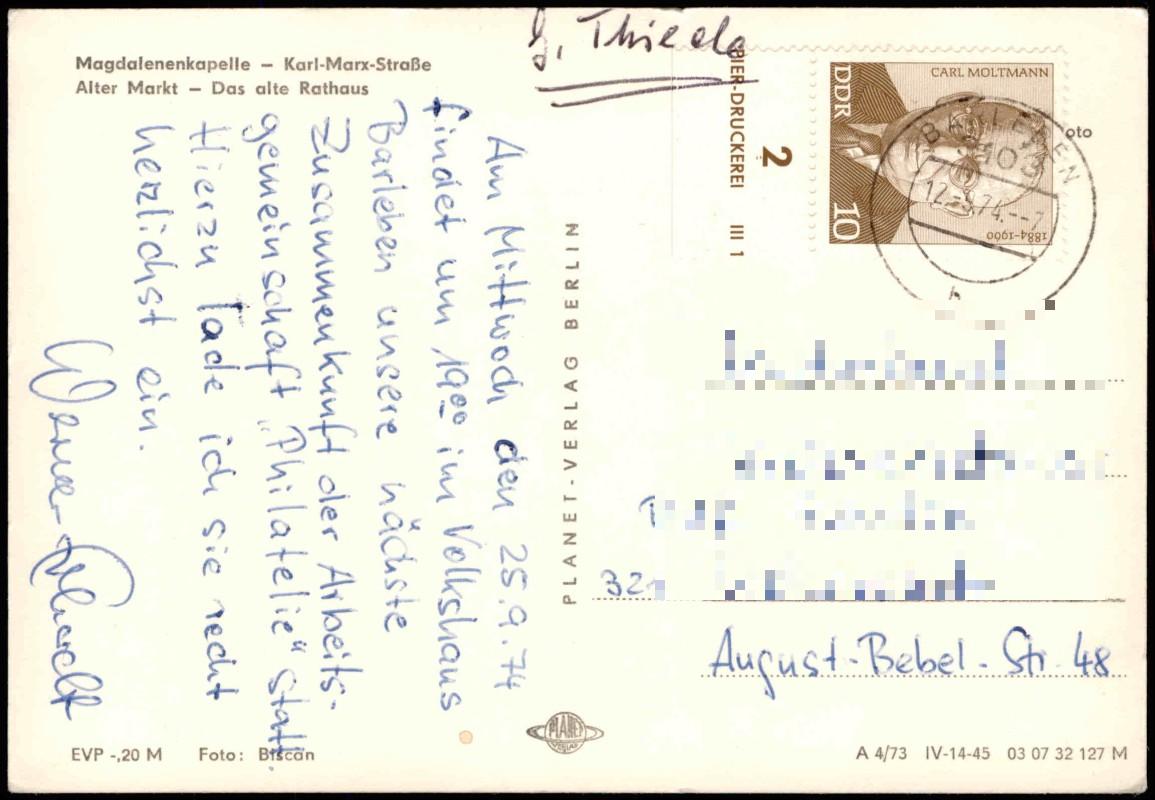 Magdalenenkapelle – Karl-Marx-Straße
Alter Markt – Das alte Rathaus
Thiede
Am Mittwoch den 25.9.74
findet um 19oo im Volkshaus
Barleben unsere nächste
Zusammenkunft der Arbeits-
gemeinschaft „Philatelie" statt.
Hierzu lade ich sie recht
herzlichst ein.
Werner
PLANET-VERLAG BERLIN
IER-DRUCKEREI III 1
2
CARL MOLTMANN
DDR
10
1884-1960
BARLEBEN
3103
12.-9.74.--7
oto
321
August-Bebel-Str. 48
PLANET
VERLAG
EVP -,20 M Foto: Biscan
A 4/73 IV-14-45 03 07 32 127 M